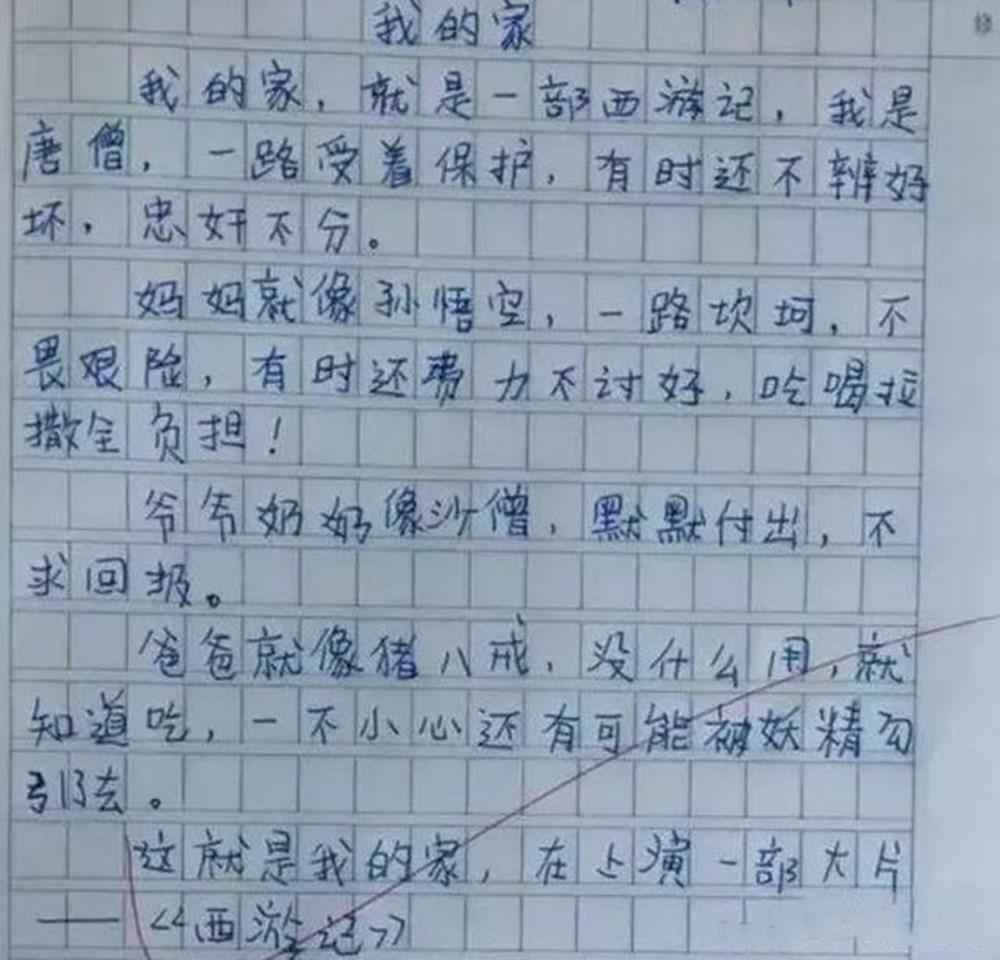 我的家
我的家，就是一部西游记，我是
唐僧，一路受着保护，有时还不辨好
坏，忠奸不分。
妈妈就像孙悟空，一路坎坷，不
畏艰险，有时还费力不讨好，吃喝拉
撒全负担！
爷爷奶奶像沙僧，默默付出，不
求回报。
爸爸就像猪八戒，没什么用，就
知道吃，一不小心还有可能被妖精勾
引去。
这就是我的家，在上演一部大片
——《西游记》